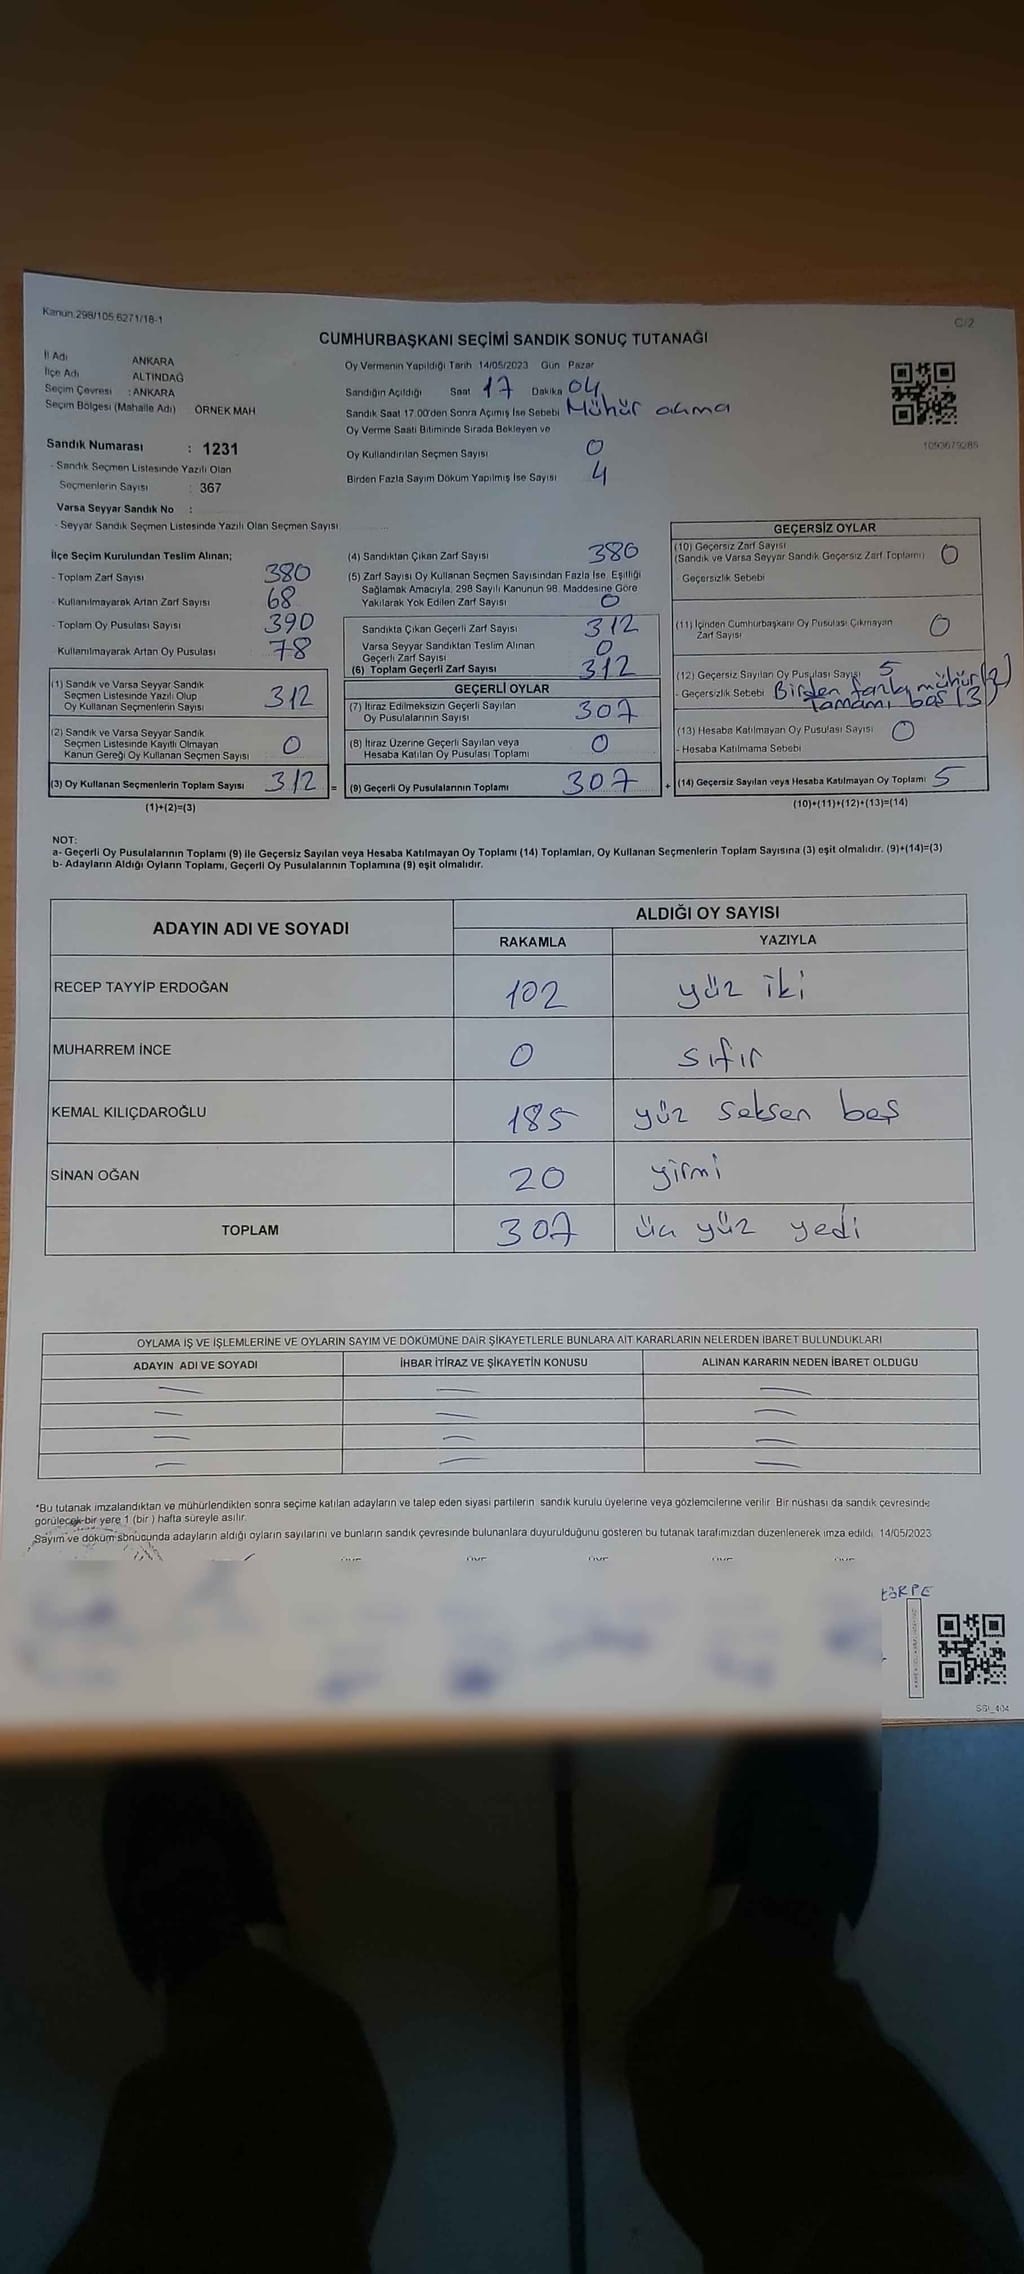 Kanun.298/105 6271/18-1
C/2
CUMHURBAŞKANI SEÇİMİ SANDIK SONUÇ TUTANAĞI
İl Adı ANKARA
İlçe Adı ALTINDAĞ
Seçim Çevresi : ANKARA
Seçim Bölgesi (Mahalle Adı) ÖRNEK MAH
Oy Vermenin Yapıldığı Tarih 14/05/2023 Gün Pazar
Sandığın Açıldığı Saat 17 Dakika 04
Sandık Saat 17.00'den Sonra Açımış İse Sebebi Mühür alıma
Oy Verme Saati Bitiminde Sırada Bekleyen ve
Oy Kullandırılan Seçmen Sayısı 0
Birden Fazla Sayım Döküm Yapılmış İse Sayısı 4
1093679285
Sandık Numarası : 1231
- Sandık Seçmen Listesinde Yazılı Olan
Seçmenlerin Sayısı : 367
Varsa Seyyar Sandık No :
- Seyyar Sandık Seçmen Listesinde Yazılı Olan Seçmen Sayısı
İlçe Seçim Kurulundan Teslim Alınan;
- Toplam Zarf Sayısı 380
- Kullanılmayarak Artan Zarf Sayısı 68
- Toplam Oy Pusulası Sayısı 390
- Kullanılmayarak Artan Oy Pusulası 78
(1) Sandık ve Varsa Seyyar Sandık
Seçmen Listesinde Yazılı Olup
Oy Kullanan Seçmenlerin Sayısı 312
(2) Sandık ve Varsa Seyyar Sandık
Seçmen Listesinde Kayıtlı Olmayan
Kanun Gereği Oy Kullanan Seçmen Sayısı 0
(3) Oy Kullanan Seçmenlerin Toplam Sayısı 312 =
(1)+(2)=(3)
(4) Sandıktan Çıkan Zarf Sayısı 380
(5) Zarf Sayısı Oy Kullanan Seçmen Sayısından Fazla İse, Eşitliği
Sağlamak Amacıyla, 298 Sayılı Kanunun 98. Maddesine Göre
Yakılarak Yok Edilen Zarf Sayısı 0
Sandıkta Çıkan Geçerli Zarf Sayısı 312
Varsa Seyyar Sandıktan Teslim Alınan
Geçerli Zarf Sayısı 0
(6) Toplam Geçerli Zarf Sayısı 312
GEÇERLİ OYLAR
(7) İtiraz Edilmeksizin Geçerli Sayılan
Oy Pusulalarının Sayısı 307
(8) İtiraz Üzerine Geçerli Sayılan veya
Hesaba Katılan Oy Pusulası Toplamı 0
(9) Geçerli Oy Pusulalarının Toplamı 307 +
GEÇERSİZ OYLAR
(10) Geçersiz Zarf Sayısı
(Sandık ve Varsa Seyyar Sandık Geçersiz Zarf Toplamı) 0
- Geçersizlik Sebebi
(11) İçinden Cumhurbaşkanı Oy Pusulası Çıkmayan
Zarf Sayısı 0
(12) Geçersiz Sayılan Oy Pusulası Sayısı 5
- Geçersizlik Sebebi Birden fazla mühür (2)
Tamamı boş (3)
(13) Hesaba Katılmayan Oy Pusulası Sayısı 0
- Hesaba Katılmama Sebebi
(14) Geçersiz Sayılan veya Hesaba Katılmayan Oy Toplamı 5
(10)+(11)+(12)+(13)=(14)
NOT:
a- Geçerli Oy Pusulalarının Toplamı (9) ile Geçersiz Sayılan veya Hesaba Katılmayan Oy Toplamı (14) Toplamları, Oy Kullanan Seçmenlerin Toplam Sayısına (3) eşit olmalıdır. (9)+(14)=(3)
b- Adayların Aldığı Oyların Toplamı, Geçerli Oy Pusulalarının Toplamına (9) eşit olmalıdır.
ADAYIN ADI VE SOYADI ALDIĞI OY SAYISI
RAKAMLA YAZIYLA
RECEP TAYYİP ERDOĞAN 102 yüz iki
MUHARREM İNCE 0 sıfır
KEMAL KILIÇDAROĞLU 185 yüz seksen beş
SİNAN OĞAN 20 yirmi
TOPLAM 307 üç yüz yedi
OYLAMA İŞ VE İŞLEMLERİNE VE OYLARIN SAYIM VE DÖKÜMÜNE DAİR ŞİKAYETLERLE BUNLARA AİT KARARLARIN NELERDEN İBARET BULUNDUKLARI
ADAYIN ADI VE SOYADI İHBAR İTİRAZ VE ŞİKAYETİN KONUSU ALINAN KARARIN NEDEN İBARET OLDUGU
*Bu tutanak imzalandıktan ve mühürlendikten sonra seçime katılan adayların ve talep eden siyasi partilerin sandık kurulu üyelerine veya gözlemcilerine verilir. Bir nüshası da sandık çevresinde
görülecek bir yere 1 (bir ) hafta süreyle asılır.
Sayım ve döküm sonucunda adayların aldığı oyların sayılarını ve bunların sandık çevresinde bulunanlara duyurulduğunu gösteren bu tutanak tarafımızdan düzenlenerek imza edildi. 14/05/2023